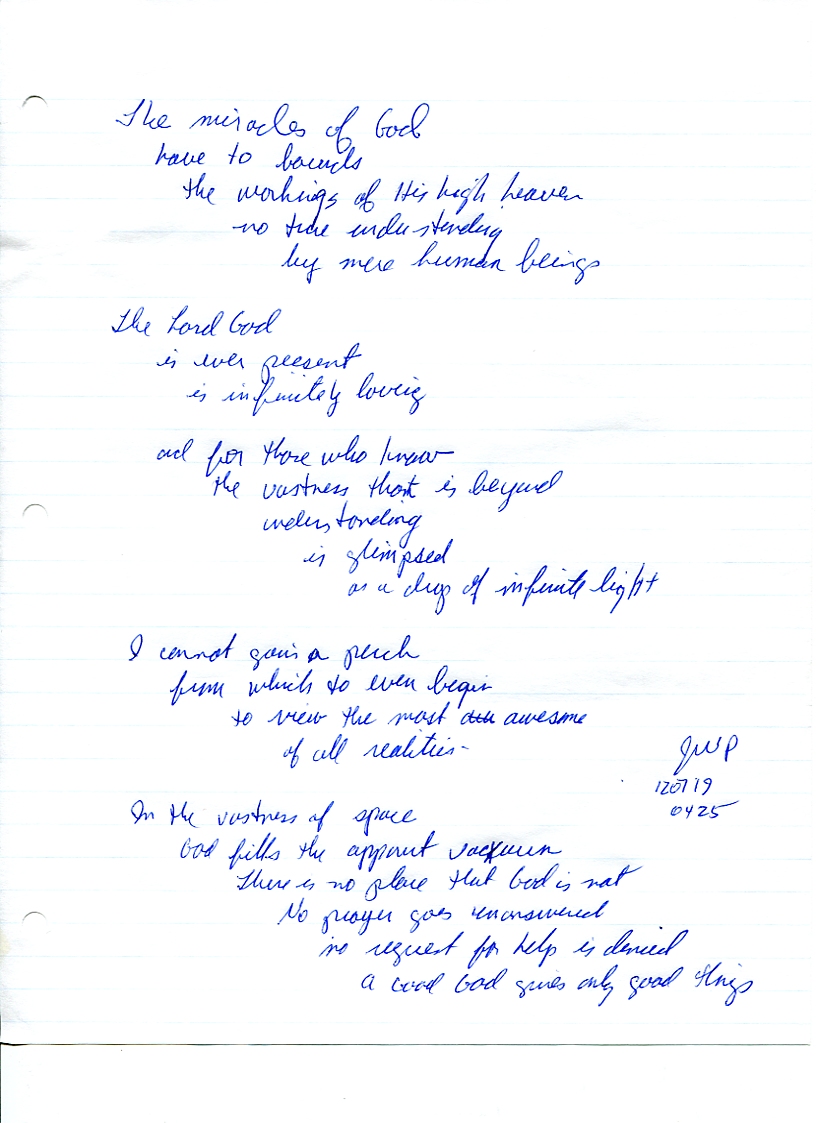 The miracles of God
have to bounds
the workings of His high heaven
no true understanding
by mere human beings
The Lord God
is ever present
is infinitely loving
and for those who know
the vastness that is beyond
understanding
is glimpsed
as a drop of infinite light
I cannot gain a perch
from which to even begin
to view the most awesome
of all realities-
JWP
120719
0425
In the vastness of space
God fills the apparent vacuum
There is no place that God is not
No prayer goes unanswered
no request for help is denied
a Good God gives only good things